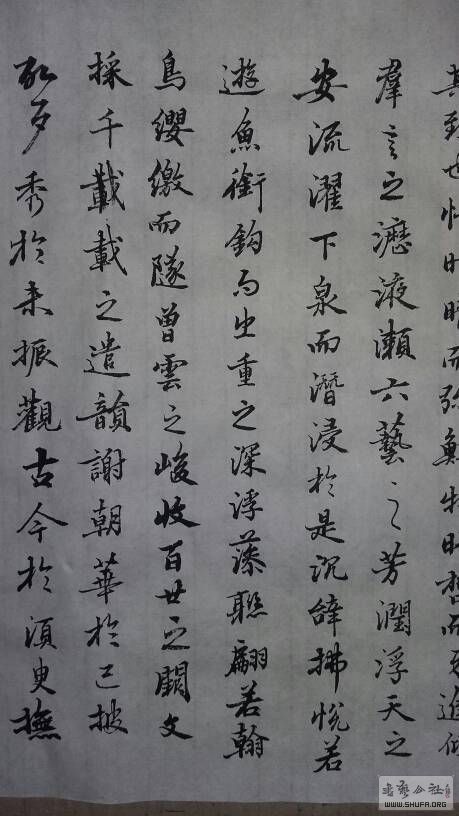 其致也情而弥鮮物而互進
羣言之瀝液瀨六藝之芳潤浮天之
安流濯下泉而潛浸於是沉辭拂悅若
遊魚銜鈎而出重之深浮藻聯翩若翰
鳥纓繳而隊曾雲之峻收百世之闕文
採千載載之遺韻謝朝華於已披
啟夕秀於未振觀古今於須臾撫
书法公社
WWW.SHUFA.ORG